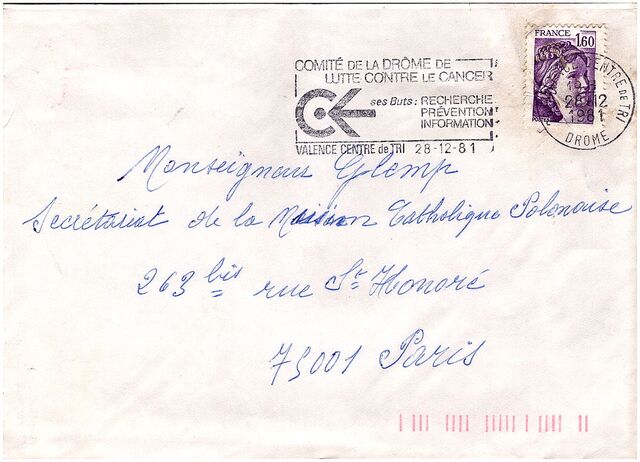 FRANCE
1,60
COMITÉ DE LA DRÔME DE
LUTTE CONTRE LE CANCER
ses Buts : RECHERCHE
PRÉVENTION
INFORMATION
VALENCE CENTRE de TRI 28-12-81
CENTRE DE TRI
28-12
1981
DRÔME
Monseigneur Glemp
Secrétariat de la Mission Catholique Polonaise
263 bis rue St Honoré
75001 Paris